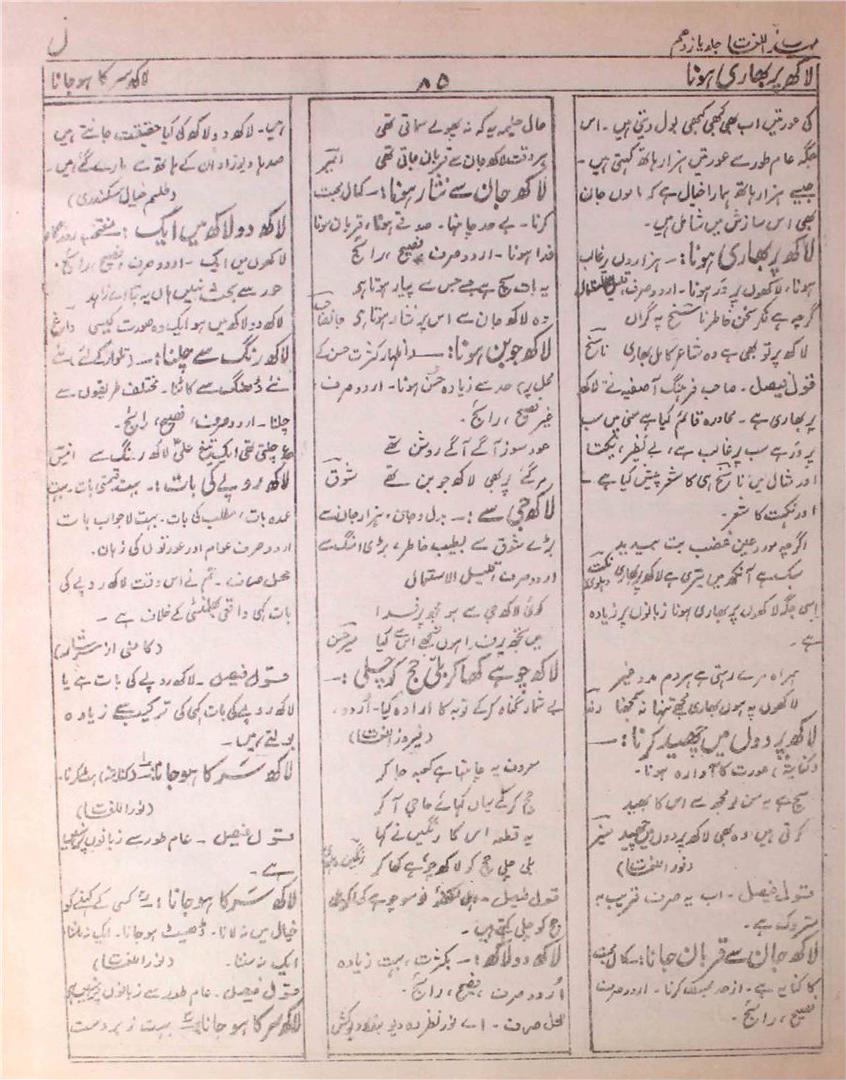 مہذب اللغت جلد یازدہم
ل
لاکھ پر بھاری ہونا
۸۵
لاکھ سر کا ہو جانا
کی عورتیں اب بھی کبھی کبھی بول دیتی ہیں۔ اس
جگہ عام طور سے عورتیں ہزار ہاتھ کہتی ہیں۔
جیسے ہزار ہاتھ ہمارا خیال ہے کہ ماموں جان
بھی اس سازش میں شامل ہیں۔
لاکھ پر بھاری ہونا:۔ ہزاروں پر غالب
ہونا، لاکھوں پر وَر ہونا۔ اردو صرف، قلیل الاستعمال
گرچہ ہے فکر سخن خاطر ناسخ پہ گراں
لاکھ پر تو بھی ہے وہ شاعر کامل بھاری ناسخ
قول فیصل۔ صاحب فرہنگ آصفیہ نے لاکھ
پر بھاری ہے۔ محاورہ قائم کیا ہے معنی میں سب
پر وَر ہے سب پر غالب ہے، بے نظر، نکہت
اور مثال میں ناسخ ہی کا شعر پیش کیا ہے۔
اور نکہت کا شعر۔
اگرچہ مور عین غضب بت بیدید
سبک ہے آنکھ میں تیری ہے لاکھ پر بھاری نکہت دہلوی
اسی جگہ لاکھوں پر بھاری ہونا زبانوں پر زیادہ
ہے۔
ہمراہ مرے رہتی ہے ہر دم مدد غیر
لاکھوں پہ ہوں بھاری مجھے تنہا نہ سمجھنا رند
لاکھ پردوں میں چھید کرنا:۔
(کنایۃً) عورت کا آوارہ ہونا۔
سچ ہے یہ سن لو مجھ سے اس کا بھید
کرتی ہیں وہ بھی لاکھ پردوں میں چھید منیر
(نور اللغت)
قول فیصل۔ اب یہ صرف قریب بہ
متروک ہے۔
لاکھ جان سے قربان جانا:۔ کمال محبت
کا کنایہ ہے۔ از حد محبت کرنا۔ اردو صرف
فصیح، رائج۔
حال حلیمہ یہ کہ نہ پھولے سماتی تھی
ہر وقت لاکھ جان سے قربان جاتی تھی
لاکھ جان سے نثار ہونا:۔ کمال محبت
کرنا۔ بے حد چاہنا۔ صدقے ہونا، قربان ہونا
فدا ہونا۔ اردو صرف، فصیح، رائج
یہ بات سچ ہے جسے جس سے پیار ہوتا ہے
وہ لاکھ جان سے اس پر نثار ہوتا ہے
لاکھ جوبن ہونا:۔ (اظہار کثرت حسن کے
محل پر) حد سے زیادہ حسن ہونا۔ اردو صرف،
غیر فصیح، رائج۔
عود سوز آگے آگے روشن تھے
پر بھی لاکھ جوبن تھے شوق
لاکھ جی سے:۔ بدل و جان، ہزار جان سے
بڑے شوق سے بطیب خاطر، بڑی امنگ سے
اردو صرف، قلیل الاستعمال
کوئی لاکھ جی سے ہو مجھ پر فدا
میں تجھ پر فدا ہوں مجھے اس سے کیا میر حسن
لاکھ چوہے کھا کر بلی حج کو چلی:۔
بے شمار گناہ کر کے توبہ کا ارادہ کیا۔ اردو،
(فیروز اللغت)
معروف یہ چاہتا ہے کعبہ جا کر
حج کر کے یہاں کہائے حاجی آ کر
یہ قطعہ اس کا رنگیں نے کہا
بلی چلی حج کو لاکھ چوہے کھا کر رنگین دہلوی
قول فیصل۔ اہل لکھنؤ نو سو چوہے کھا کے بلی
حج کو چلی کہتے ہیں۔
لاکھ دو لاکھ:۔ بکثرت، بہت زیادہ
اردو صرف، فصیح، رائج۔
محل صرف۔ اے نور نظر وہ دیو ہفتاد دیوکش
ہے۔ لاکھ دو لاکھ کی کیا حقیقت جانتے ہیں
صدہا دیوزاد ان کے ہاتھ سے مارے گئے ہیں۔
(طلسم خیال سکندری)
لاکھ دو لاکھ میں ایک:۔ منتخب روزگار
لاکھوں میں ایک۔ اردو صرف، فصیح، رائج۔
حور سے بحث نہیں ہاں یہ بتا اے زاہد
لاکھ دو لاکھ میں ہو ایک وہ صورت کیسی داغ
لاکھ رنگ سے چلنا:۔ (تلوار کے لئے) نئے
نئے ڈھنگ سے کاٹنا۔ مختلف طریقوں سے
چلنا۔ اردو صرف، فصیح، رائج۔
ع چلتی تھی ایک تیغ علی لاکھ رنگ سے انیس
لاکھ روپے کی بات:۔ بہت قیمتی بات۔ بہت
عمدہ بات، مطلب کی بات۔ بہت لاجواب بات
اردو صرف عوام اور عورتوں کی زبان۔
محل صرف۔ تم نے اس وقت لاکھ روپے کی
بات کہی واقعی بھلمنسی کے خلاف ہے۔
(کامنی از سرشار)
قول فیصل۔ لاکھ روپے کی بات ہے یا
لاکھ روپے کی بات کہی کی ترکیب سے زیادہ
بولتے ہیں۔
لاکھ سر کا ہو جانا:۔ (کنایۃً) ہٹ کرنا۔
(نور اللغت)
قول فیصل۔ عام طور سے زبانوں پر نہیں
ہے۔
لاکھ سر کا ہو جانا:۔ کسی کے کہنے کو
خیال میں نہ لانا۔ ڈھیٹ ہو جانا۔ ایک نہ ماننا
ایک نہ سننا۔ (نور اللغت)
قول فیصل۔ عام طور سے زبانوں پر نہیں ہے
لاکھ سر کا ہو جانا:۔ بہت زبردست